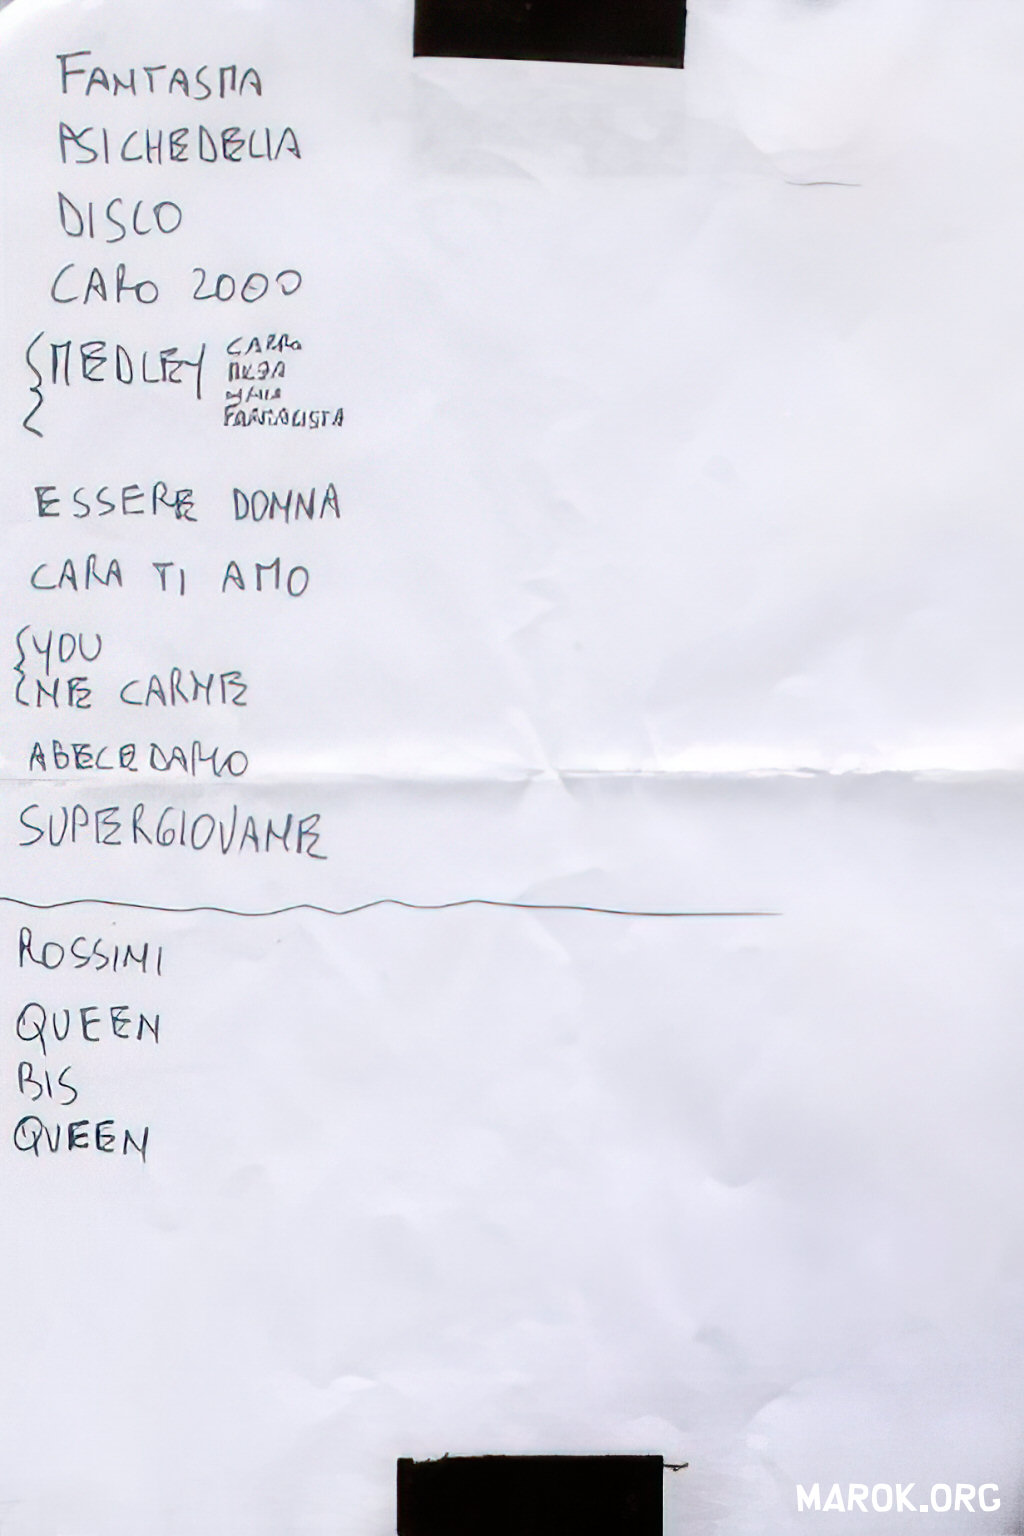 FANTASMA
PSICHEDELIA
DISCO
CARO 2000
MEDLEY CARRO
FANTALISTA
ESSERE DONNA
CARA TI AMO
YOU
NE CARNE
ABECEDARIO
SUPERGIOVANE
ROSSINI
QUEEN
BIS
QUEEN
MAROK.ORG